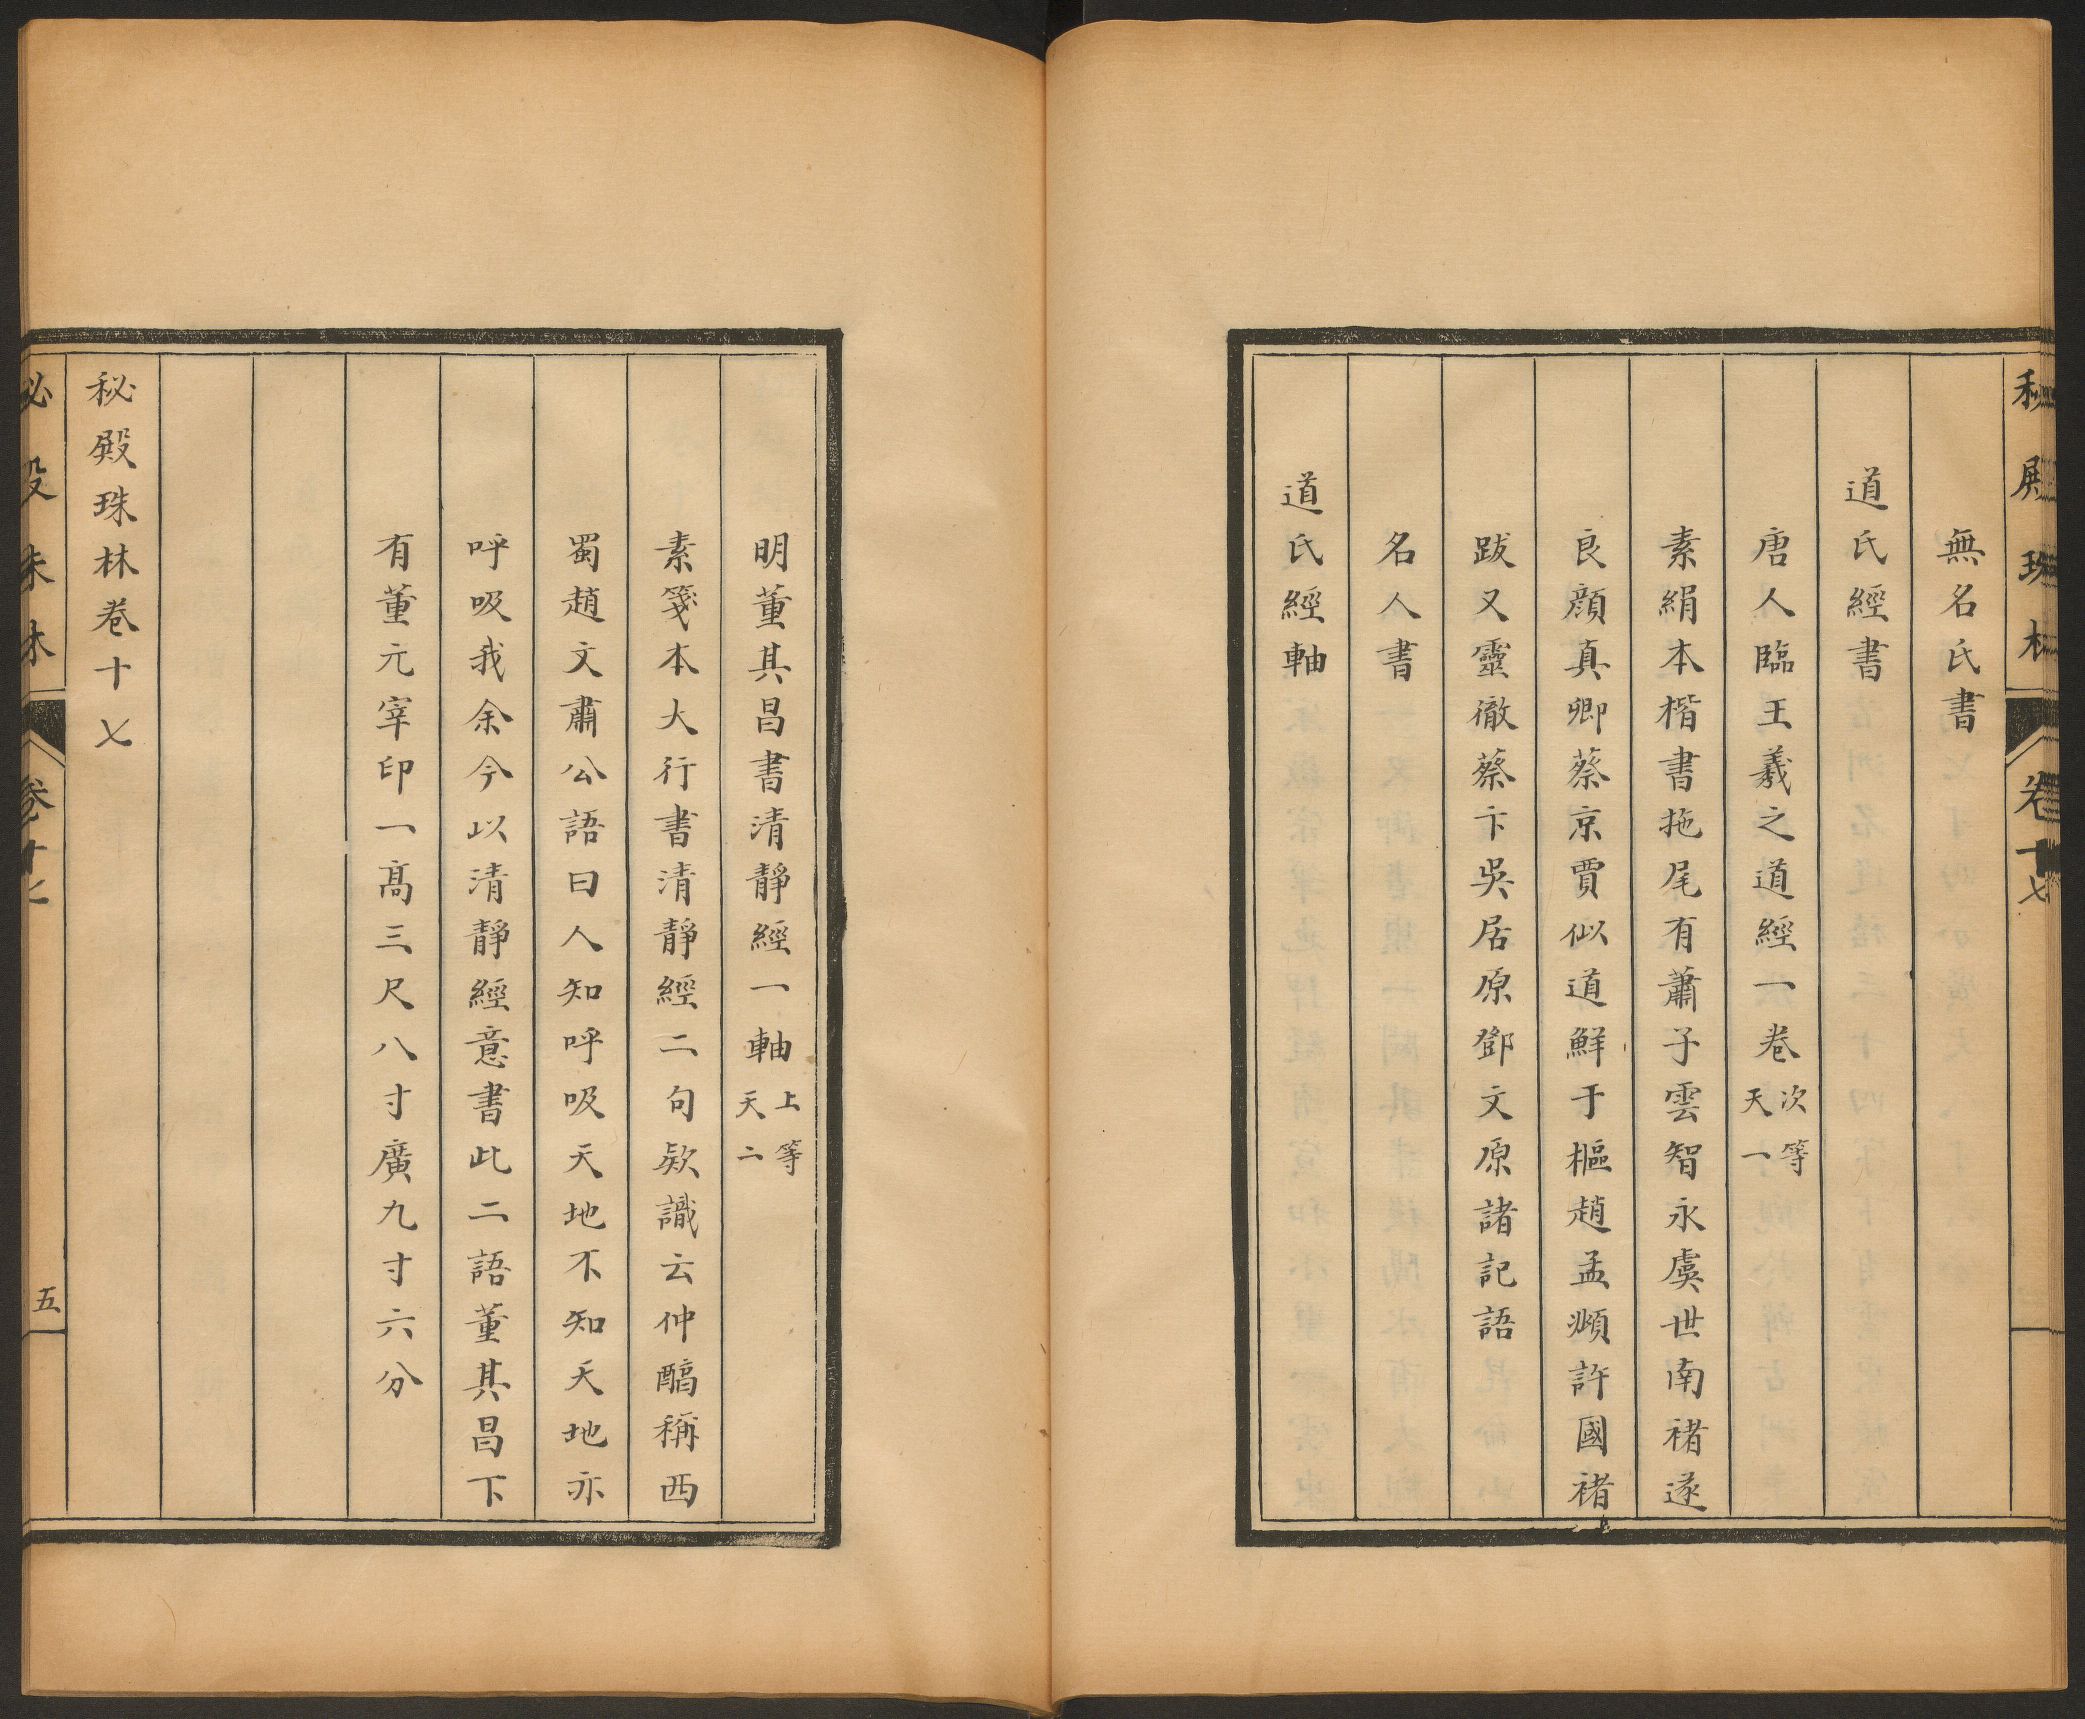 秘殿珠林 卷十七
無名氏書
道氏經書
唐人臨王羲之道經一卷 次等 天一
素絹本楷書拖尾有蕭子雲智永虞世南褚遂
良顔真卿蔡京賈似道鮮于樞趙孟頫許國褚
跋又靈徹蔡卞吳居原鄧文原諸記語
名人書
道氏經軸
明董其昌書清靜經一軸 上等 天二
素箋本大行書清靜經二句欵識云仲醕稱西
蜀趙文肅公語曰人知呼吸天地不知天地亦
呼吸我余今以清靜經意書此二語董其昌下
有董元宰印一高三尺八寸廣九寸六分
秘殿珠林卷十七
秘殿珠林 卷十七 五